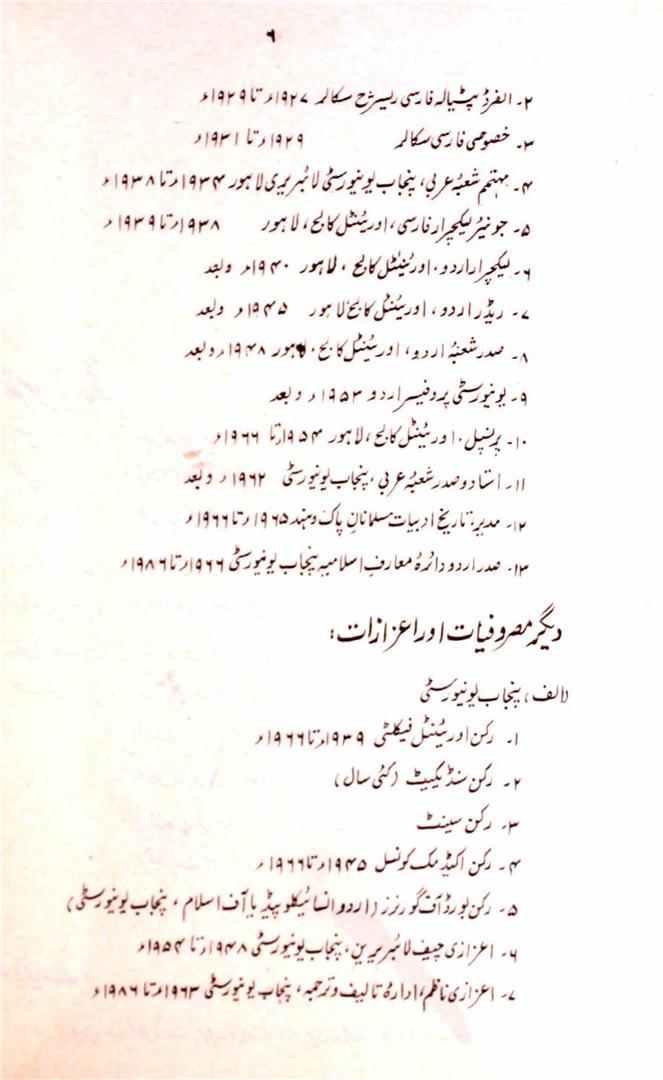 ۶
۲۔ الفرڈ پٹیالہ فارسی ریسرچ سکالر ۱۹۲۷ء تا ۱۹۲۹ء
۳۔ خصوصی فارسی سکالر ۱۹۲۹ء تا ۱۹۳۱ء
۴۔ مہتمم شعبۂ عربی، پنجاب یونیورسٹی لائبریری لاہور ۱۹۳۴ء تا ۱۹۳۸ء
۵۔ جونیئر لیکچرار فارسی، اورینٹل کالج، لاہور ۱۹۳۸ء تا ۱۹۳۹ء
۶۔ لیکچرار اردو، اورینٹل کالج، لاہور ۱۹۴۰ء وبعد
۷۔ ریڈر اردو، اورینٹل کالج لاہور ۱۹۴۵ء وبعد
۸۔ صدر شعبۂ اردو، اورینٹل کالج، لاہور ۱۹۴۸ء وبعد
۹۔ یونیورسٹی پروفیسر اردو ۱۹۵۳ء وبعد
۱۰۔ پرنسپل، اورینٹل کالج، لاہور ۱۹۵۴ء تا ۱۹۶۶ء
۱۱۔ استاد و صدر شعبۂ عربی، پنجاب یونیورسٹی ۱۹۶۲ء وبعد
۱۲۔ مدیر: تاریخ ادبیات مسلمانانِ پاک و ہند ۱۹۶۵ء تا ۱۹۶۶ء
۱۳۔ صدر اردو دائرۂ معارف اسلامیہ پنجاب یونیورسٹی ۱۹۶۶ء تا ۱۹۸۶ء
دیگر مصروفیات اور اعزازات:
(الف) پنجاب یونیورسٹی
۱۔ رکن اورینٹل فیکلٹی ۱۹۳۹ء تا ۱۹۶۶ء
۲۔ رکن سنڈیکیٹ (کئی سال)
۳۔ رکن سینٹ
۴۔ رکن اکیڈمک کونسل ۱۹۴۵ء تا ۱۹۶۶ء
۵۔ رکن بورڈ آف گورنرز (اردو انسائیکلوپیڈیا آف اسلام، پنجاب یونیورسٹی)
۶۔ اعزازی چیف لائبریرین، پنجاب یونیورسٹی ۱۹۴۸ء تا ۱۹۵۴ء
۷۔ اعزازی ناظم، ادارہ تالیف و ترجمہ، پنجاب یونیورسٹی ۱۹۶۳ء تا ۱۹۸۶ء